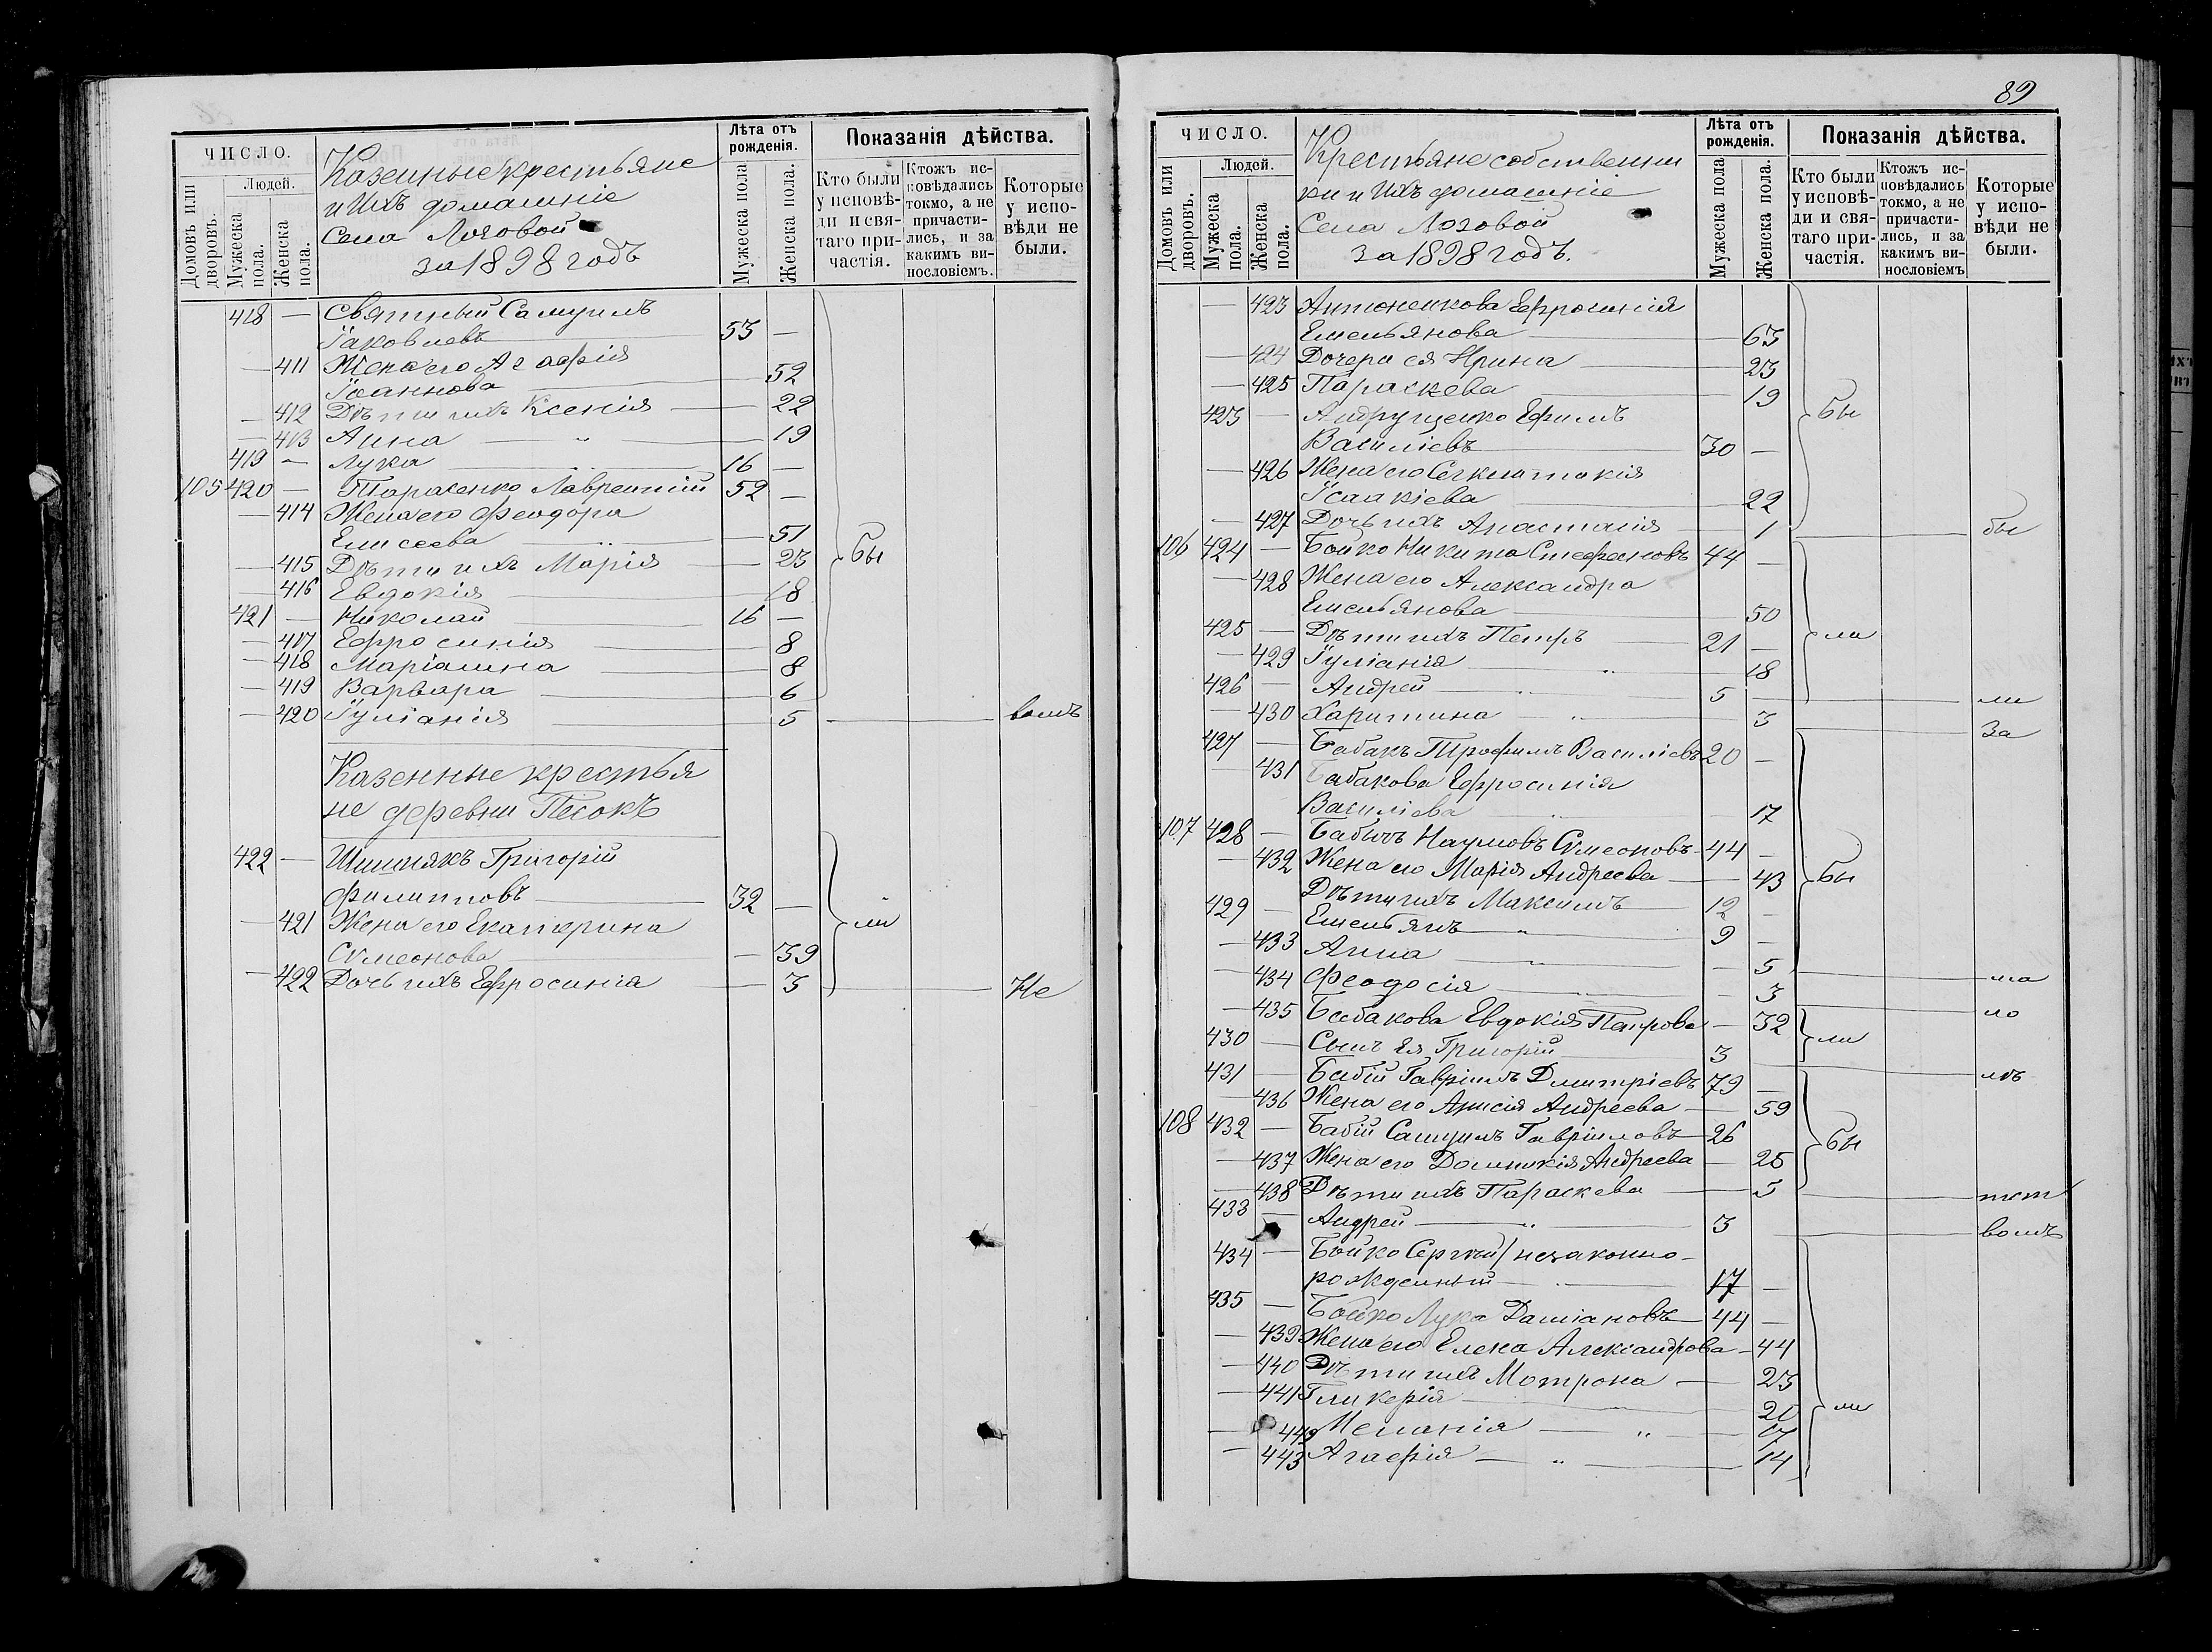 ЧИСЛО.
Домовъ или дворовъ.
Людей.
Мужеска пола.
Женска пола.
Казенные крестьяне
и ихъ домашніе
Села Лозовой
за 1898 годъ
Лѣта отъ рожденія.
Мужеска пола
Женска пола.
Показанія дѣйства.
Кто были у исповѣди и святаго причастія.
Ктожъ исповѣдались токмо, а не причастились, и за какимъ винословіемъ.
Которые у исповѣди не были.
418 — Святный Самуилъ
Іаковлевъ 53 —
— 411 Жена его Агафія
Іоаннова — 52
— 412 Дѣти ихъ Ксенія — 22
— 413 Анна — " — 19
419 — Лука 16 —
105 420 — Тарасенко Лаврентій 52 —
— 414 Жена его Феодора
Елисеева — 51
— 415 Дѣти ихъ Марія — 23 бы
— 416 Евдокія — 18
421 — Николай 16 —
— 417 Ефросинія — 8
— 418 Маріанна — 8
— 419 Варвара — 6
— 420 Іуліанія — 5 — вомъ
Казенные крестья
не деревни Песокъ
422 — Шишнякъ Григорій
Филипповъ 32 —
— 421 Жена его Екатерина ли
Сѵмеонова — 39
— 422 Дочь ихъ Ефросинія — 3 — Не
89
ЧИСЛО.
Домовъ или дворовъ.
Людей.
Мужеска пола.
Женска пола.
Крестьяне собственни
ки и ихъ домашніе
Села Лозовой
за 1898 годъ.
Лѣта отъ рожденія.
Мужеска пола
Женска пола.
Показанія дѣйства.
Кто были у исповѣди и святаго причастія.
Ктожъ исповѣдались токмо, а не причастились, и за какимъ винословіемъ
Которые у исповѣди не были.
— 423 Антоненкова Ефросинія
Емельянова — 63
— 424 Дочери ея Ирина — 23
— 425 Параскева — 19
423 — Андрущенко Ефимъ бы
Василіевъ 30 —
— 426 Жена его
Ісаакіева — 22
— 427 Дочь ихъ Анастасія — 1 — бы
106 424 — Бойко Никита Стефановъ 44 —
— 428 Жена его Александра
Емельянова — 50
425 — Дѣти ихъ Петръ 21 — ли
— 429 Іуліанія " — 18
426 — Андрей " 5 — ли
— 430 Харитина " 3 — за
427 — Бабакъ Трофимъ Василіевъ 20 —
— 431 Бабакова Ефросинія
Василіева — 17
107 428 — Бабичъ Наумовъ Сѵмеоновъ 44 —
— 432 Жена его Марія Андреева — 43 бы
429 — Дѣти ихъ Максимъ 12 —
Емельянъ " 9 —
— 433 Анна " — 5 — ма
— 434 Феодосія — 3 — ло
— 435 Бабакова Евдокія Петрова — 32
430 — Сынъ Ея Григорій 3 ли
431 — Бабій Гавріилъ Дмитріевъ 79 — лѣ
— 436 Жена его Анисія Андреева — 59
108 432 — Бабій Самуилъ Гавріиловъ 26 бы
— 437 Жена его Домникія Андреева — 25
— 438 Дѣти ихъ Параскева — 5 — тст
433 — Андрей " 3 — вомъ
434 — Бойко Сергѣй / незаконно-
рожденный 17 —
435 — Бойко Лука Даміановъ 44 —
— 439 Жена его Елена Александрова — 44
— 440 Дѣти ихъ Мотрона — 23
— 441 Гликерія — 20 ли
— 442 Меланія " — 17
— 443 Агафія " — 14